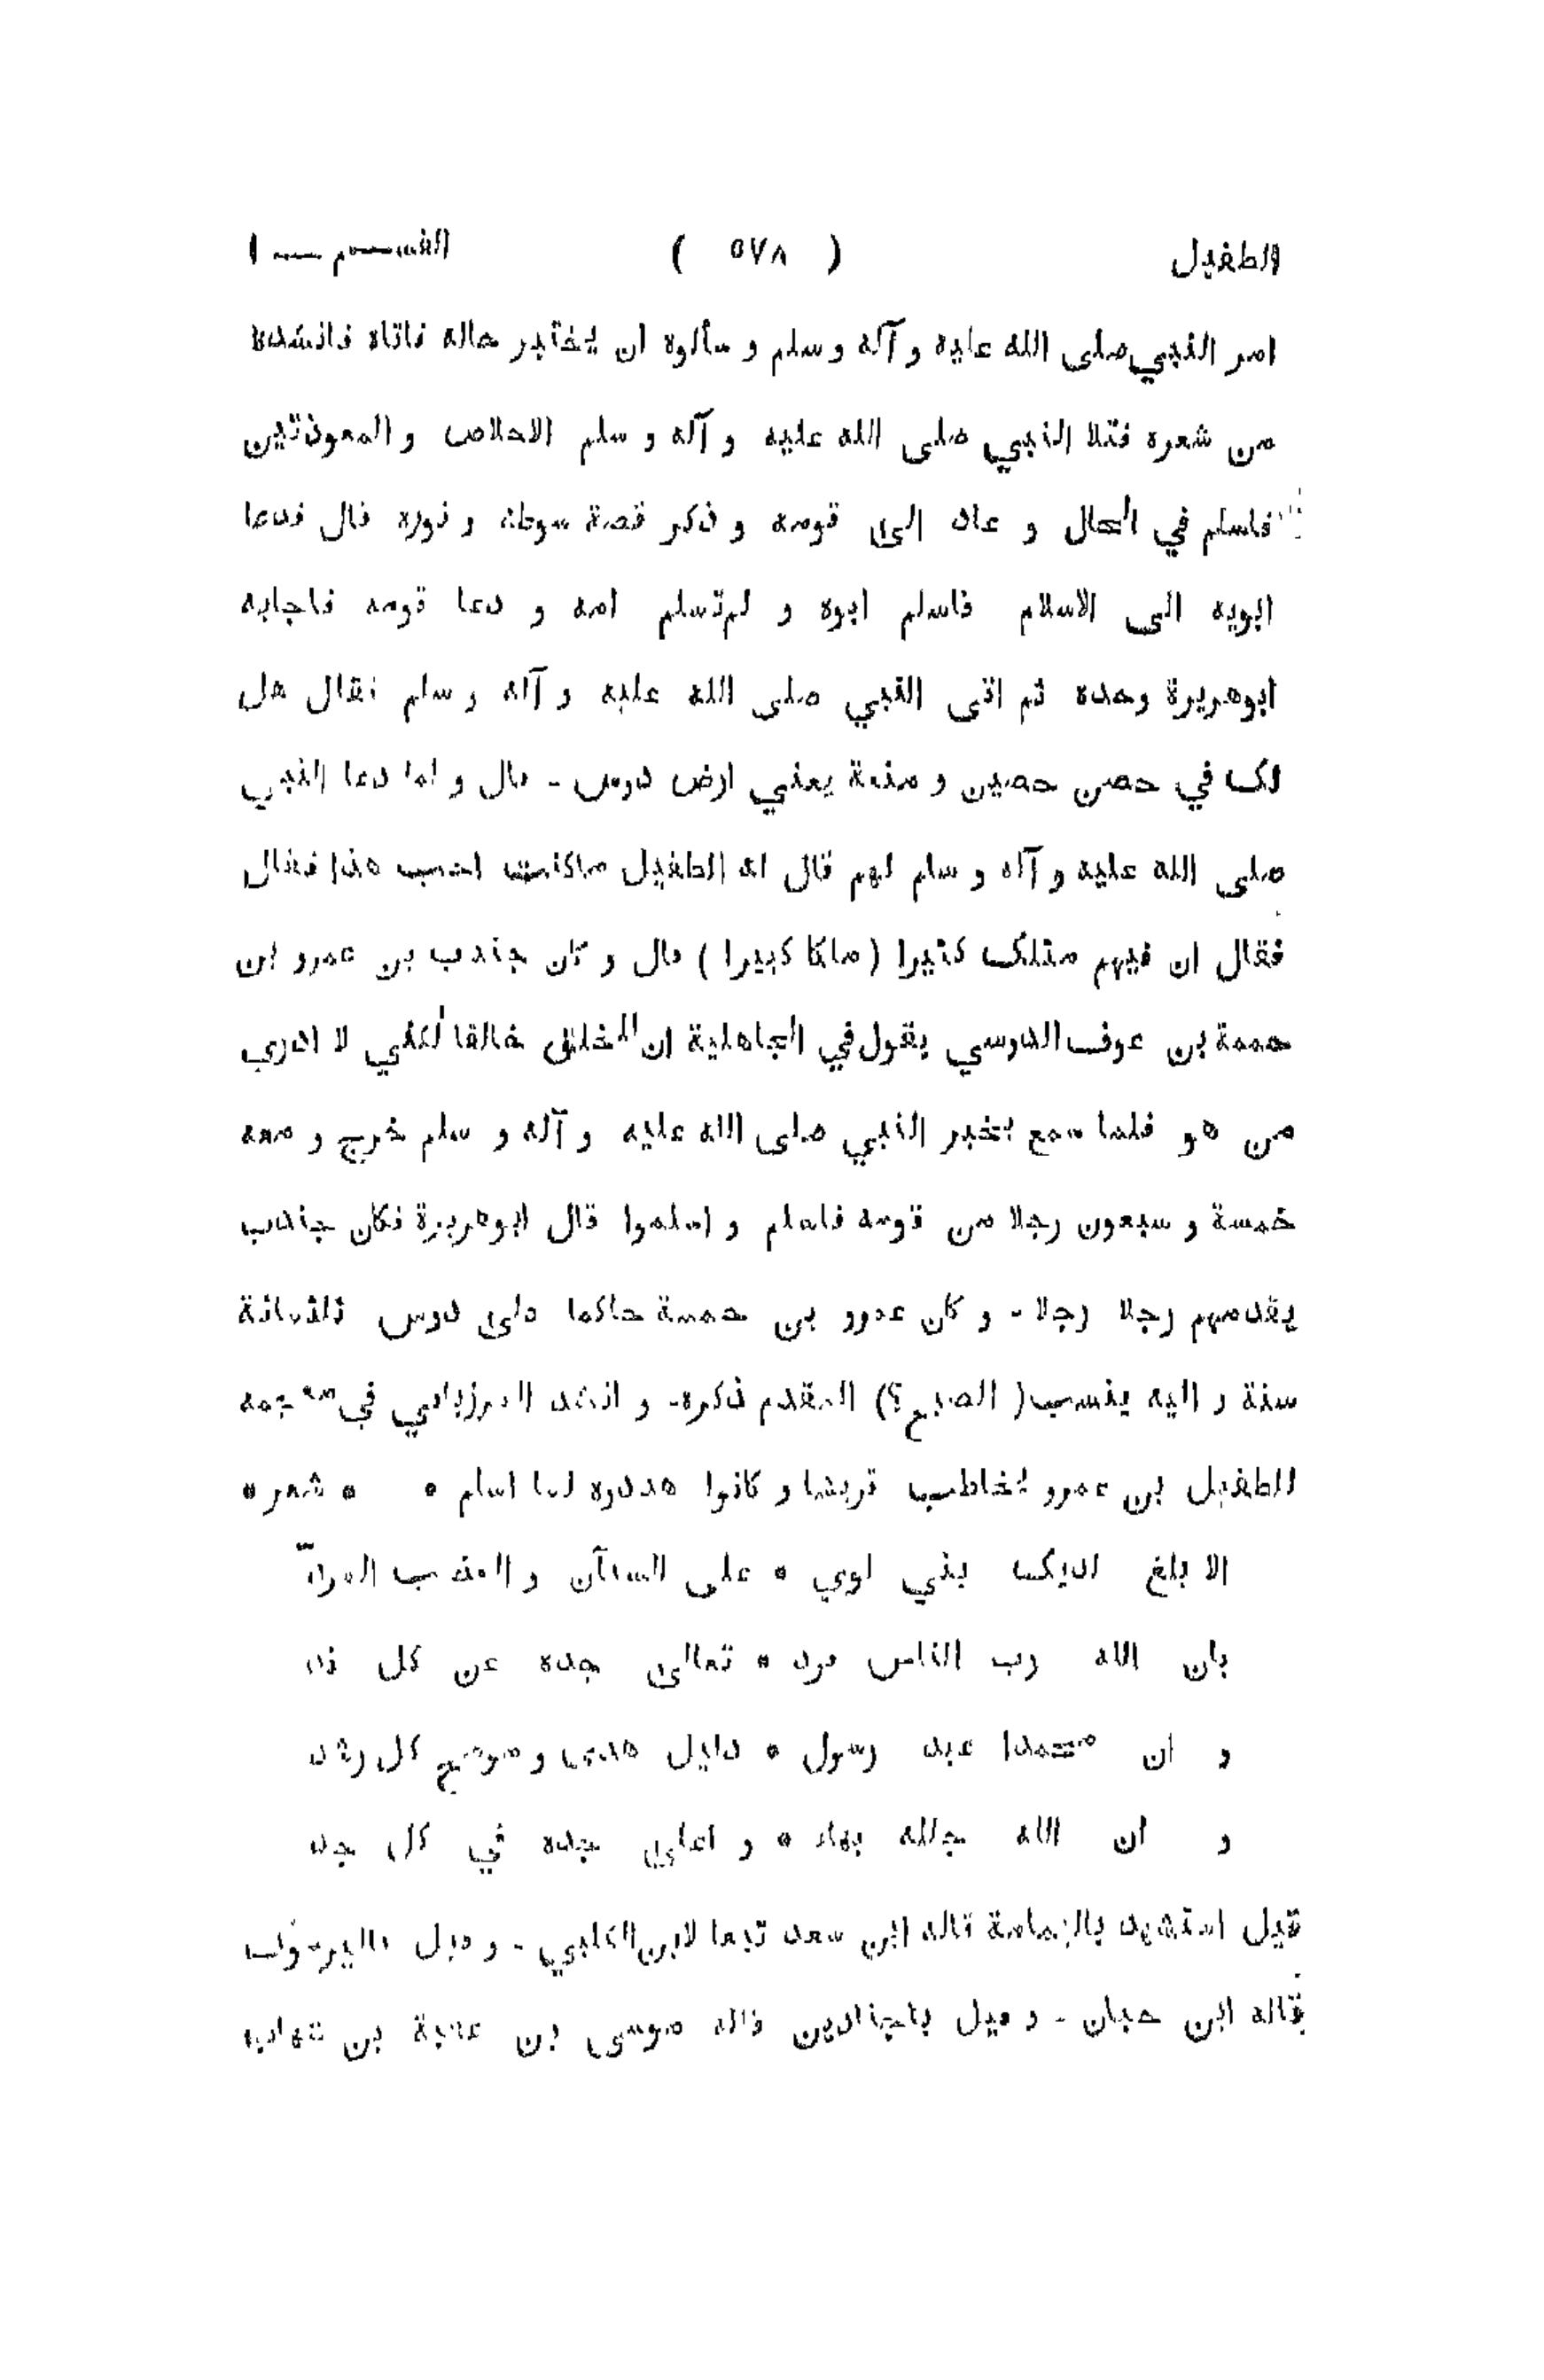 الطفيل ( ٥٧٨ ) القسم — ١
امر النبي صلى الله عليه و آله و سلم و سألوه ان يختبر حاله فاتاه فانشده
من شعره فتلا النبي صلى الله عليه و آله و سلم الاخلاص و المعوذتين
فاسلم في الحال و عاد الى قومه و ذكر قصة سوطه و نوره قال فدعا
ابويه الى الاسلام فاسلم ابوه و لم تسلم امه و دعا قومه فاجابه
ابوهريرة وحده ثم اتى النبي صلى الله عليه و آله و سلم فقال هل
لك في حصن حصين و منعة يعني ارض دوس - قال و لما دعا النبي
صلى الله عليه و آله و سلم لهم قال له الطفيل ماكنت احب هذا فقال
فقال ان فيهم مثلك كثيرا ( ملكا كبيرا ) قال و كان جندب بن عمرو ابن
حممة بن عوف الدوسي يقول في الجاهلية ان للخلق خالقا لكني لا ادري
من هو فلما سمع بخبر النبي صلى الله عليه و آله و سلم خرج و معه
خمسة و سبعون رجلا من قومه فاسلم و اسلموا قال ابوهريرة فكان جندب
يقدمهم رجلا رجلا - و كان عمرو بن حممة حاكما على دوس ثلثمائة
سنة و اليه ينسب ( الصبح ؟) المقدم ذكره - و انشد المرزباني في معجمه
للطفيل بن عمرو يخاطب قريشا و كانوا هددوه لما اسلم * * شعر *
الا بلغ لديك بني لوي * على الشنآن و الغضب المردّ
بان الله رب الناس فرد * تعالى جده عن كل ند
و ان محمدا عبد رسول * دليل هدى و موضح كل رشد
و ان الله جلله بهاء * و اعلى جده في كل جد
قيل استشهد باليمامة قاله ابن سعد تبعا لابن الكلبي - و قيل باليرموك
قاله ابن حبان - و قيل باجنادين قاله موسى بن عقبة بن شهاب